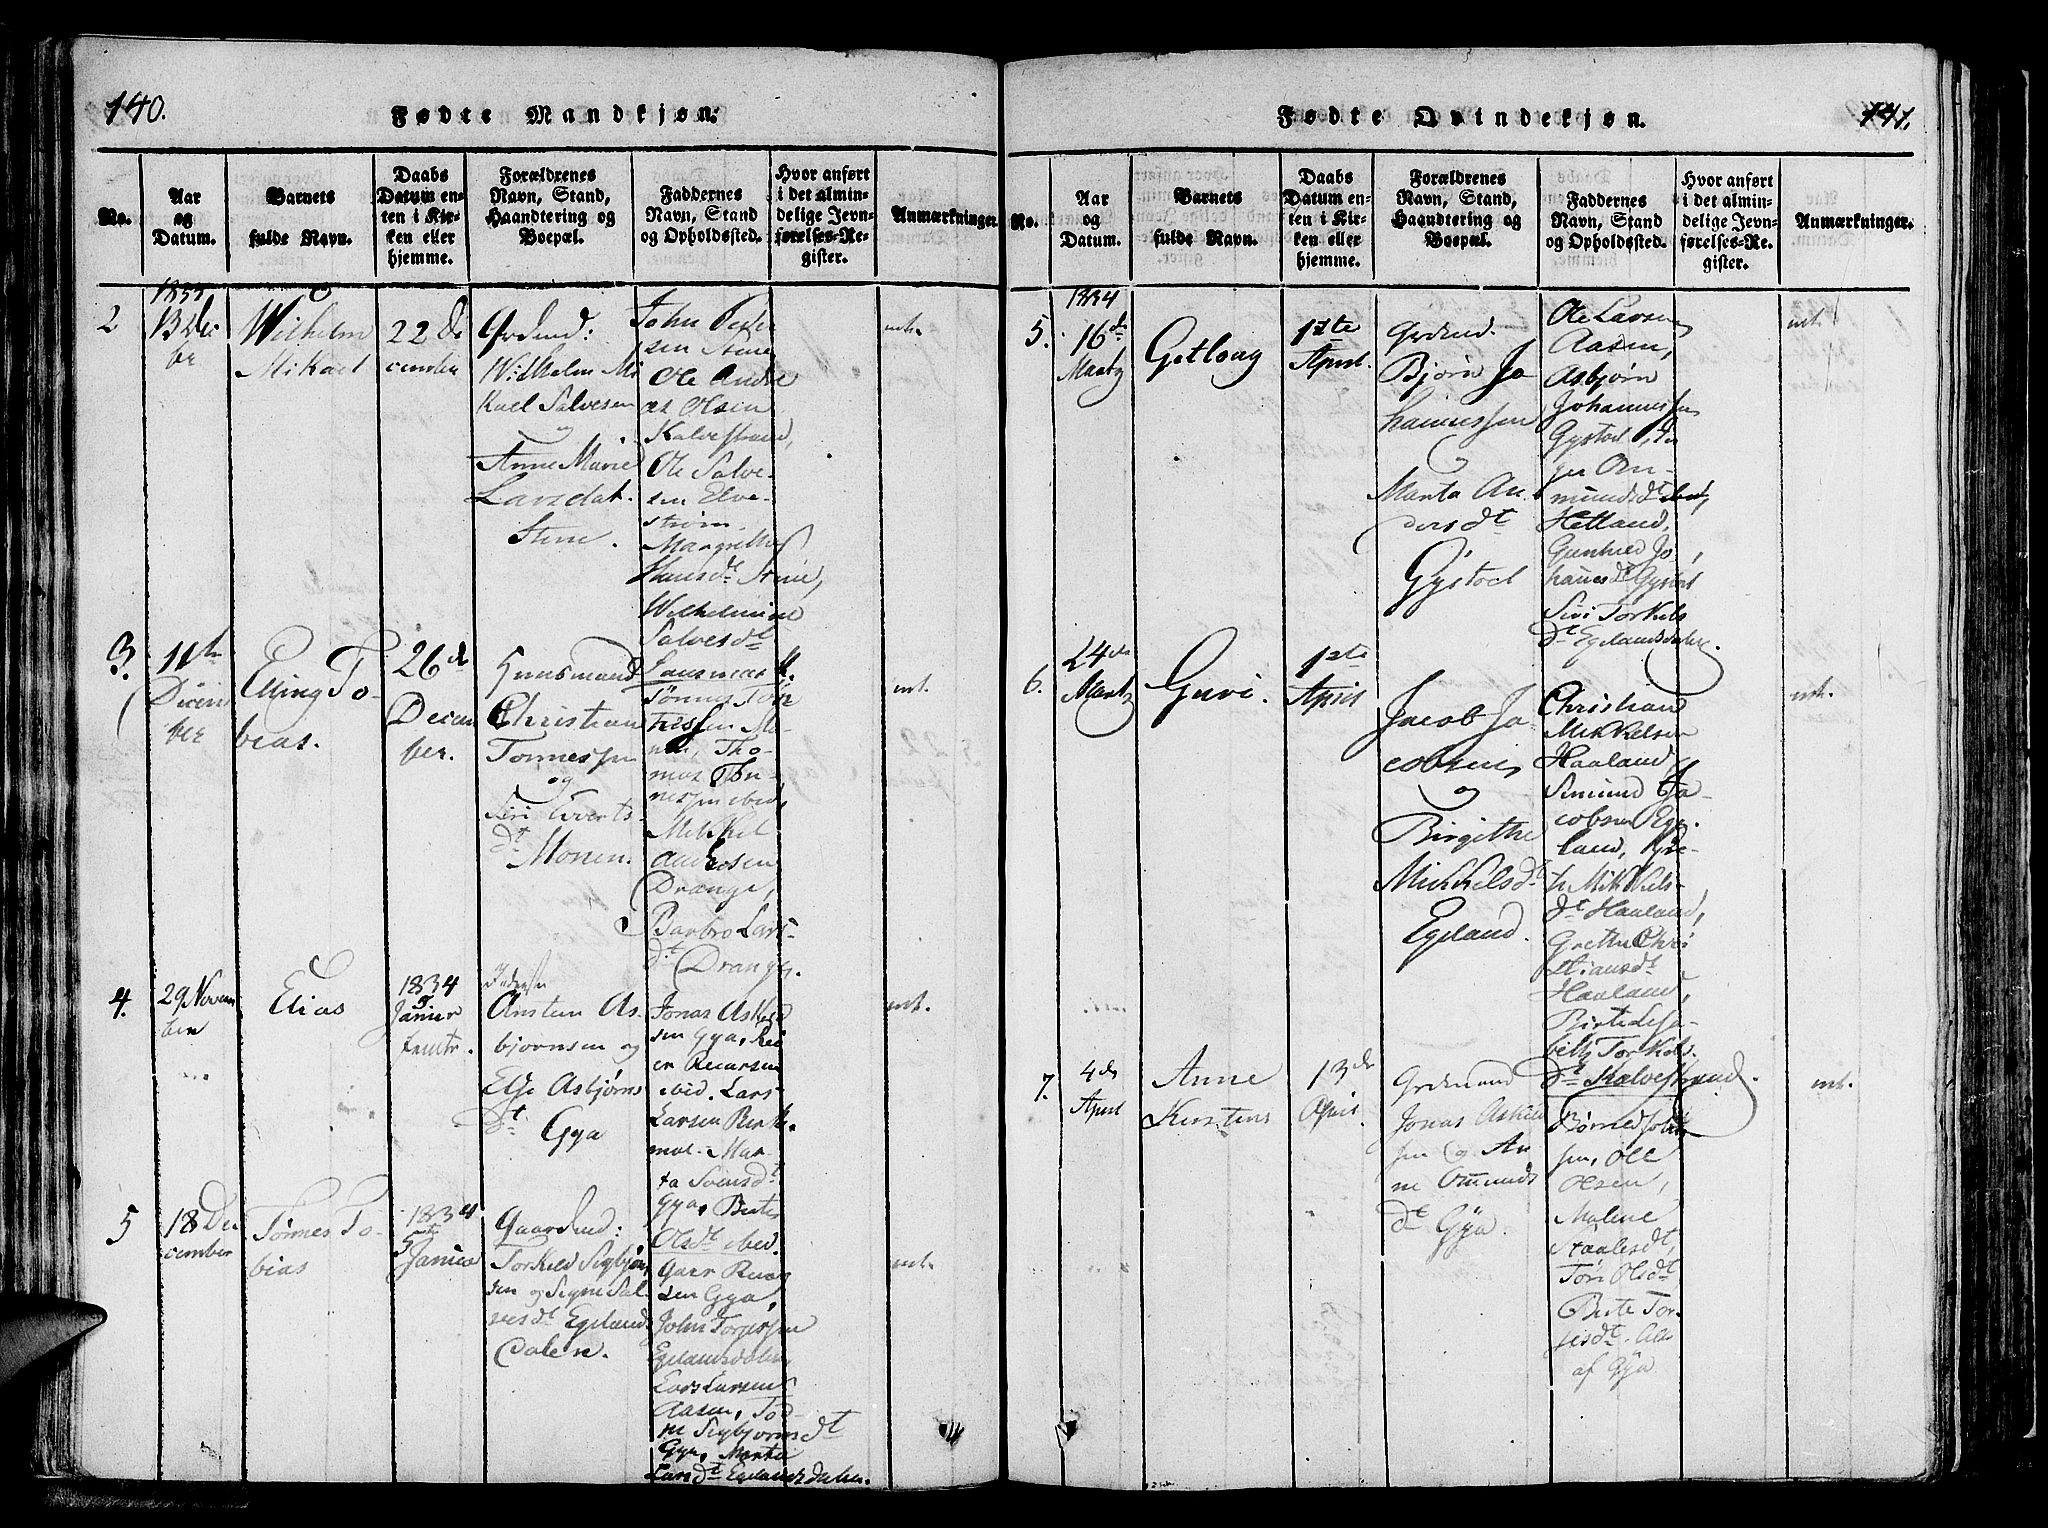 140.
Fødte Mandkjøn.
No.
Aar
og
Datum.
Barnets
fulde Navn.
Daabs
Datum en-
ten i Kir-
ken eller
hjemme.
Forældrenes
Navn, Stand,
Haandtering og
Boepæl.
Faddernes
Navn, Stand
og Opholdssted.
Hvor anført
i det almin-
delige Jevn-
førelses-Re-
gister.
Anmærkninger.
2
1833
13 De
br
Wilhelm
Mikael
22 De
cember
Grdmd:
Wilhelm Mi
kael Salvesen
og
Anne Marie
Larsdat.
Stene.
John Peder
sen Stene
Ole Andre
as Olsen
Kalvestrand,
Ole Salve-
sen Elve-
strøm.
Margrethe
Hansdt Stene,
Wilhelmine
Salvesdt
3.
11te
Decem
ber
Elling To-
bias.
26de
Decem
ber.
Huusmand
Christian
Tønnessen
og
Siri Everts-
dt
Monen.
Tønnes Tøn
nessen Mo-
nen, Tho-
mas Tøn-
nessen ibid,
Mikkel
Andersen
Drange,
Barbro Lars-
dt Drange.
4.
29 Novem
ber
Elias
1834
5
Januar
Arsten As-
bjørnsen og
Else Asbjørns
dt
Gya
Jonas Askild
sen Gya, Rei
er Reiersen
ibid. Lars
Larsen Birke
moe. Mar-
ta Svensdt
Gya, Berte
Olsdt ibid.
5
18 De
cember
Tønnes To-
bias
1834
5te
Januar
Gaardmd:
Torkild Sigbjørn
sen og Signe Sal
vesdt Egelands
dalen.
sen Gya,
John Torgersen
Egelandsdalen,
Lars Larsen
Aasen, Tod
ne Sigbjørnsdt
Gya, Marte
Larsdt Egelandsdalen.
141.
Fødte Qvindekjøn.
No.
Aar
og
Datum.
Barnets
fulde Navn.
Daabs
Datum en-
ten i Kir-
ken eller
hjemme.
Forældrenes
Navn, Stand,
Haandtering og
Boepæl.
Faddernes
Navn, Stand
og Opholdssted.
Hvor anført
i det almin-
delige Jevn-
førelses-Re-
gister.
Anmærkninger.
5.
1834
16de
Martz
Getlong
1ste
April.
Grdmd.
Bjørn Jo
hannessen
og
Marta An
dersdt
Gystøl
Ole Larsen
Aasen,
Asbjørn
Johannessen
Gystøl,
Om-
mundsdt ibid,
Hetland,
Gunhild Jo
hannesdt Gystøl
Siri Torkels
dt Egelandsdalen.
6.
24de
Martz
Guri.
1ste
April
Jacob Ja-
cobsen,
og
Birgithe
Mikkelsdt
Egeland.
Christian
Mikkelsen
Haaland
Simund Ja-
cobsen Ege-
land, Gre-
te Mikkels-
dt Haaland,
Grethe Chri
stiansdt
Haaland,
Birte Lisa-
beth Torkels-
dt Kalvestrand.
7.
4de
April
Anne
Kirstine
13de
April.
Grdmand
Jonas Askild
sen og An
ne Omunds
dt Gya.
sen, Ole
Olsen,
Malene
Staalesdt,
Tøri Olsdt
Birte Tor-
jesdt. Alle
af Gya